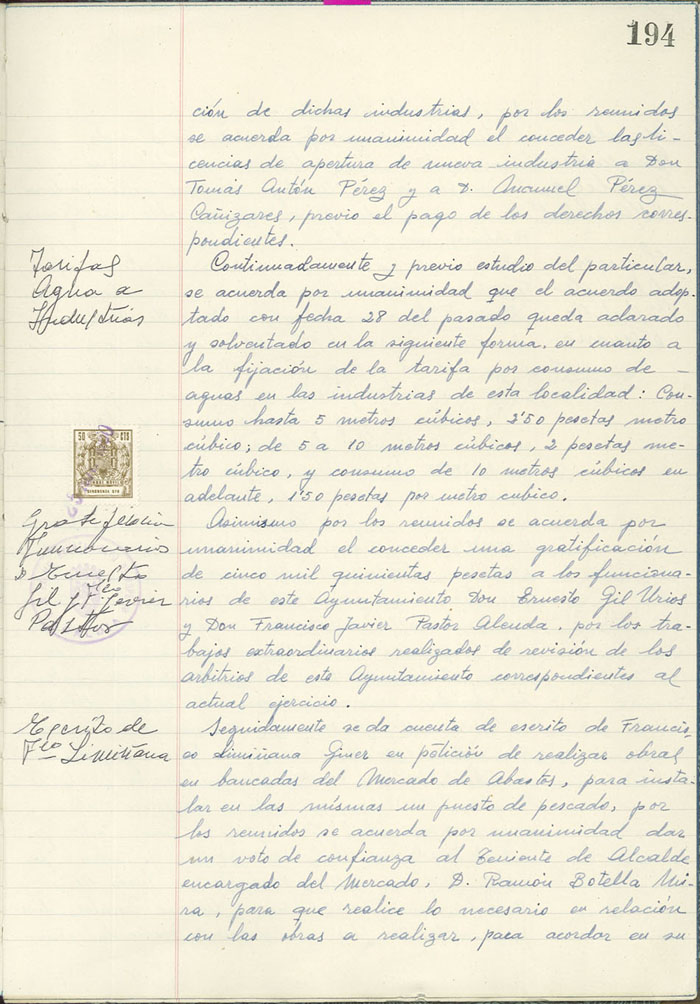 194
ción de dichas industrias, por los reunidos
se acuerda por unanimidad el conceder las li-
cencias de apertura de nueva industria a Don
Tomás Antón Pérez y a D. Manuel Pérez
Cañizares, previo el pago de los derechos corres-
pondientes.
Tarifas
Agua a
Industrias
Continuadamente y previo estudio del particular,
se acuerda por unanimidad que el acuerdo adop-
tado con fecha 28 del pasado queda aclarado
y solventado en la siguiente forma, en cuanto a
la fijación de la tarifa por consumo de -
aguas en las industrias de esta localidad: Con-
sumo hasta 5 metros cúbicos, 2'50 pesetas metro
cúbico; de 5 a 10 metros cúbicos, 2 pesetas me-
tro cúbico, y consumo de 10 metros cúbicos en
adelante, 1'50 pesetas por metro cubico.
50 CTS
Gratificación
Funcionarios
D Ernesto
Gil y Fco Javier
Pastor
Asimismo por los reunidos se acuerda por
unanimidad el conceder una gratificación
de cinco mil quinientas pesetas a los funciona-
rios de este Ayuntamiento Don Ernesto Gil Urios
y Don Francisco Javier Pastor Alenda, por los tra-
bajos extraordinarios realizados de revisión de los
arbitrios de este Ayuntamiento correspondientes al
actual ejercicio.
Escrito de
Fco Limiñana
Seguidamente se da cuenta de escrito de Francis-
co Limiñana Giner en petición de realizar obras
en bancadas del Mercado de Abastos, para insta-
lar en las mismas un puesto de pescado, por
los reunidos se acuerda por unanimidad dar
un voto de confianza al Teniente de Alcalde
encargado del Mercado, D. Ramón Botella Mi-
ra, para que realice lo necesario en relación
con las obras a realizar, para acordar en su